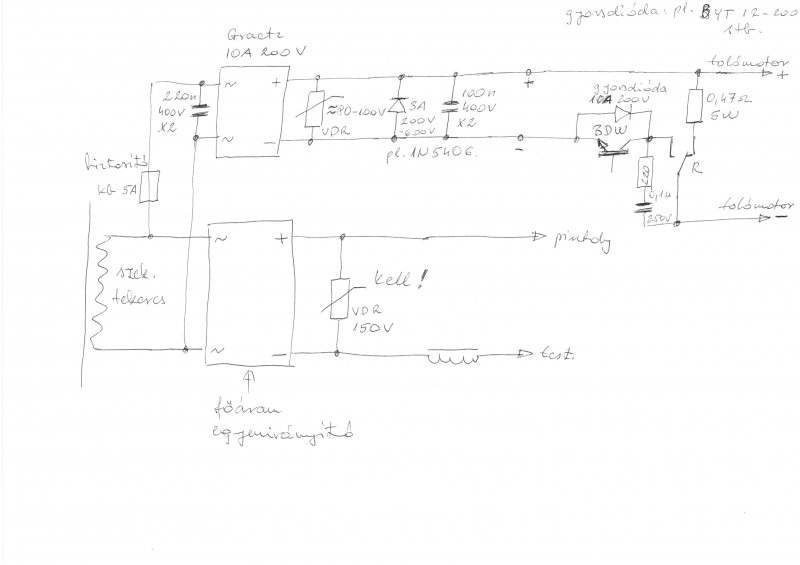 gyorsdióda: pl. BYT 12-200
stb.
Graetz
10A 200V
tolómotor
+
220n
400V
X2
~
+
~
−
≈90-100V
VDR
5A
200V
-600V
pl. 1N5406.
100n
400V
X2
+
−
gyorsdióda
10A 200V
BDW
0,47Ω
5W
R
220
0,1µ
250V
tolómotor
−
biztosító
kb 5A
szek.
tekercs
~
+
~
−
pisztoly
kell!
VDR
150V
test.
főáram
egyenirányító